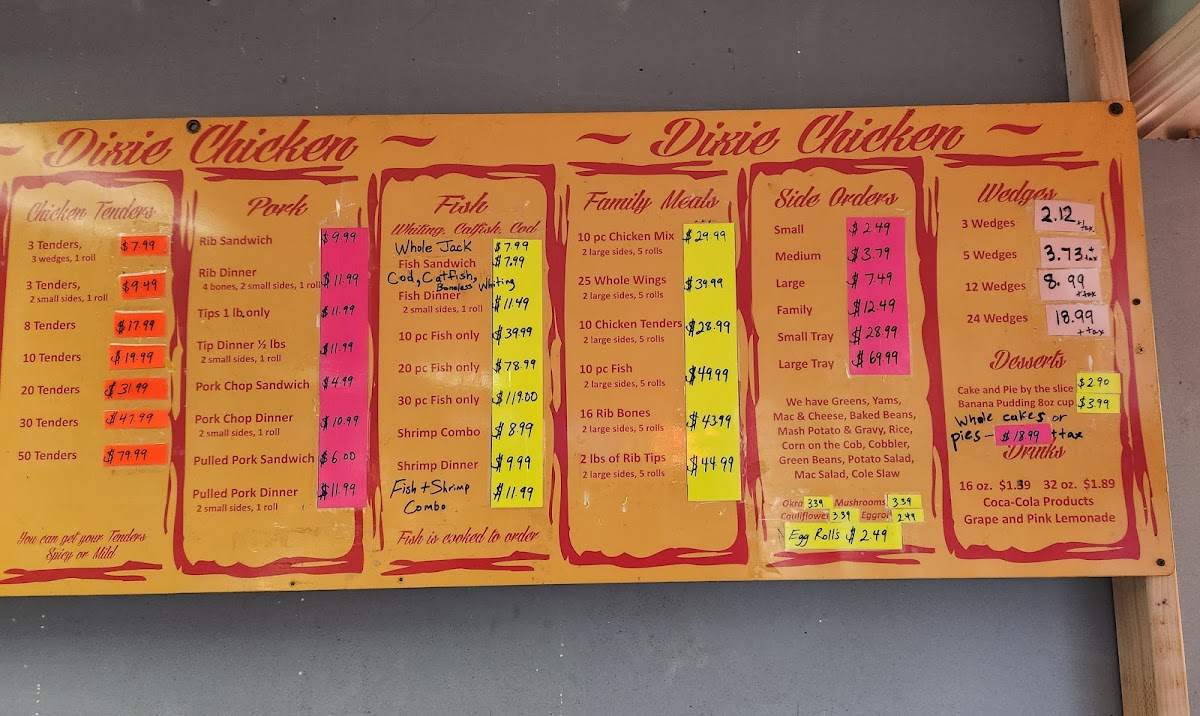 Dixie Chicken
Dixie Chicken
Chicken Tenders
3 Tenders, $7.99
3 wedges, 1 roll
3 Tenders, $9.49
2 small sides, 1 roll
8 Tenders $17.99
10 Tenders $19.99
20 Tenders $31.99
30 Tenders $47.99
50 Tenders $79.99
You can get your Tenders
Spicy or Mild
Pork
Rib Sandwich $9.99
Rib Dinner $11.99
4 bones, 2 small sides, 1 roll
Tips 1 lb. only $11.99
Tip Dinner ½ lbs $11.99
2 small sides, 1 roll
Pork Chop Sandwich $4.99
Pork Chop Dinner $10.99
2 small sides, 1 roll
Pulled Pork Sandwich $6.00
Pulled Pork Dinner $11.99
2 small sides, 1 roll
Fish
Whiting, Catfish, Cod
Whole Jack $7.99
Fish Sandwich $7.99
Cod, Catfish,
Boneless Whiting
Fish Dinner $11.49
2 small sides, 1 roll
10 pc Fish only $39.99
20 pc Fish only $78.99
30 pc Fish only $119.00
Shrimp Combo $8.99
Shrimp Dinner $9.99
Fish + Shrimp $11.99
Combo
Fish is cooked to order
Family Meals
10 pc Chicken Mix $29.99
2 large sides, 5 rolls
25 Whole Wings $39.99
2 large sides, 5 rolls
10 Chicken Tenders $28.99
2 large sides, 5 rolls
10 pc Fish $49.99
2 large sides, 5 rolls
16 Rib Bones $43.99
2 large sides, 5 rolls
2 lbs of Rib Tips $44.99
2 large sides, 5 rolls
Side Orders
Small $2.49
Medium $3.79
Large $7.49
Family $12.49
Small Tray $28.99
Large Tray $69.99
We have Greens, Yams,
Mac & Cheese, Baked Beans,
Mash Potato & Gravy, Rice,
Corn on the Cob, Cobbler,
Green Beans, Potato Salad,
Mac Salad, Cole Slaw
Okra 3.39 Mushrooms 3.39
Cauliflower 3.39 Eggroll 2.49
Egg Rolls $2.49
Wedges
3 Wedges 2.12 + tax
5 Wedges 3.73 + tax
12 Wedges 8.99 + tax
24 Wedges 18.99 + tax
Desserts
Cake and Pie by the slice $2.90
Banana Pudding 8oz cup $3.99
Whole cakes or
pies - $18.99 + tax
Drinks
16 oz. $1.39 32 oz. $1.89
Coca-Cola Products
Grape and Pink Lemonade